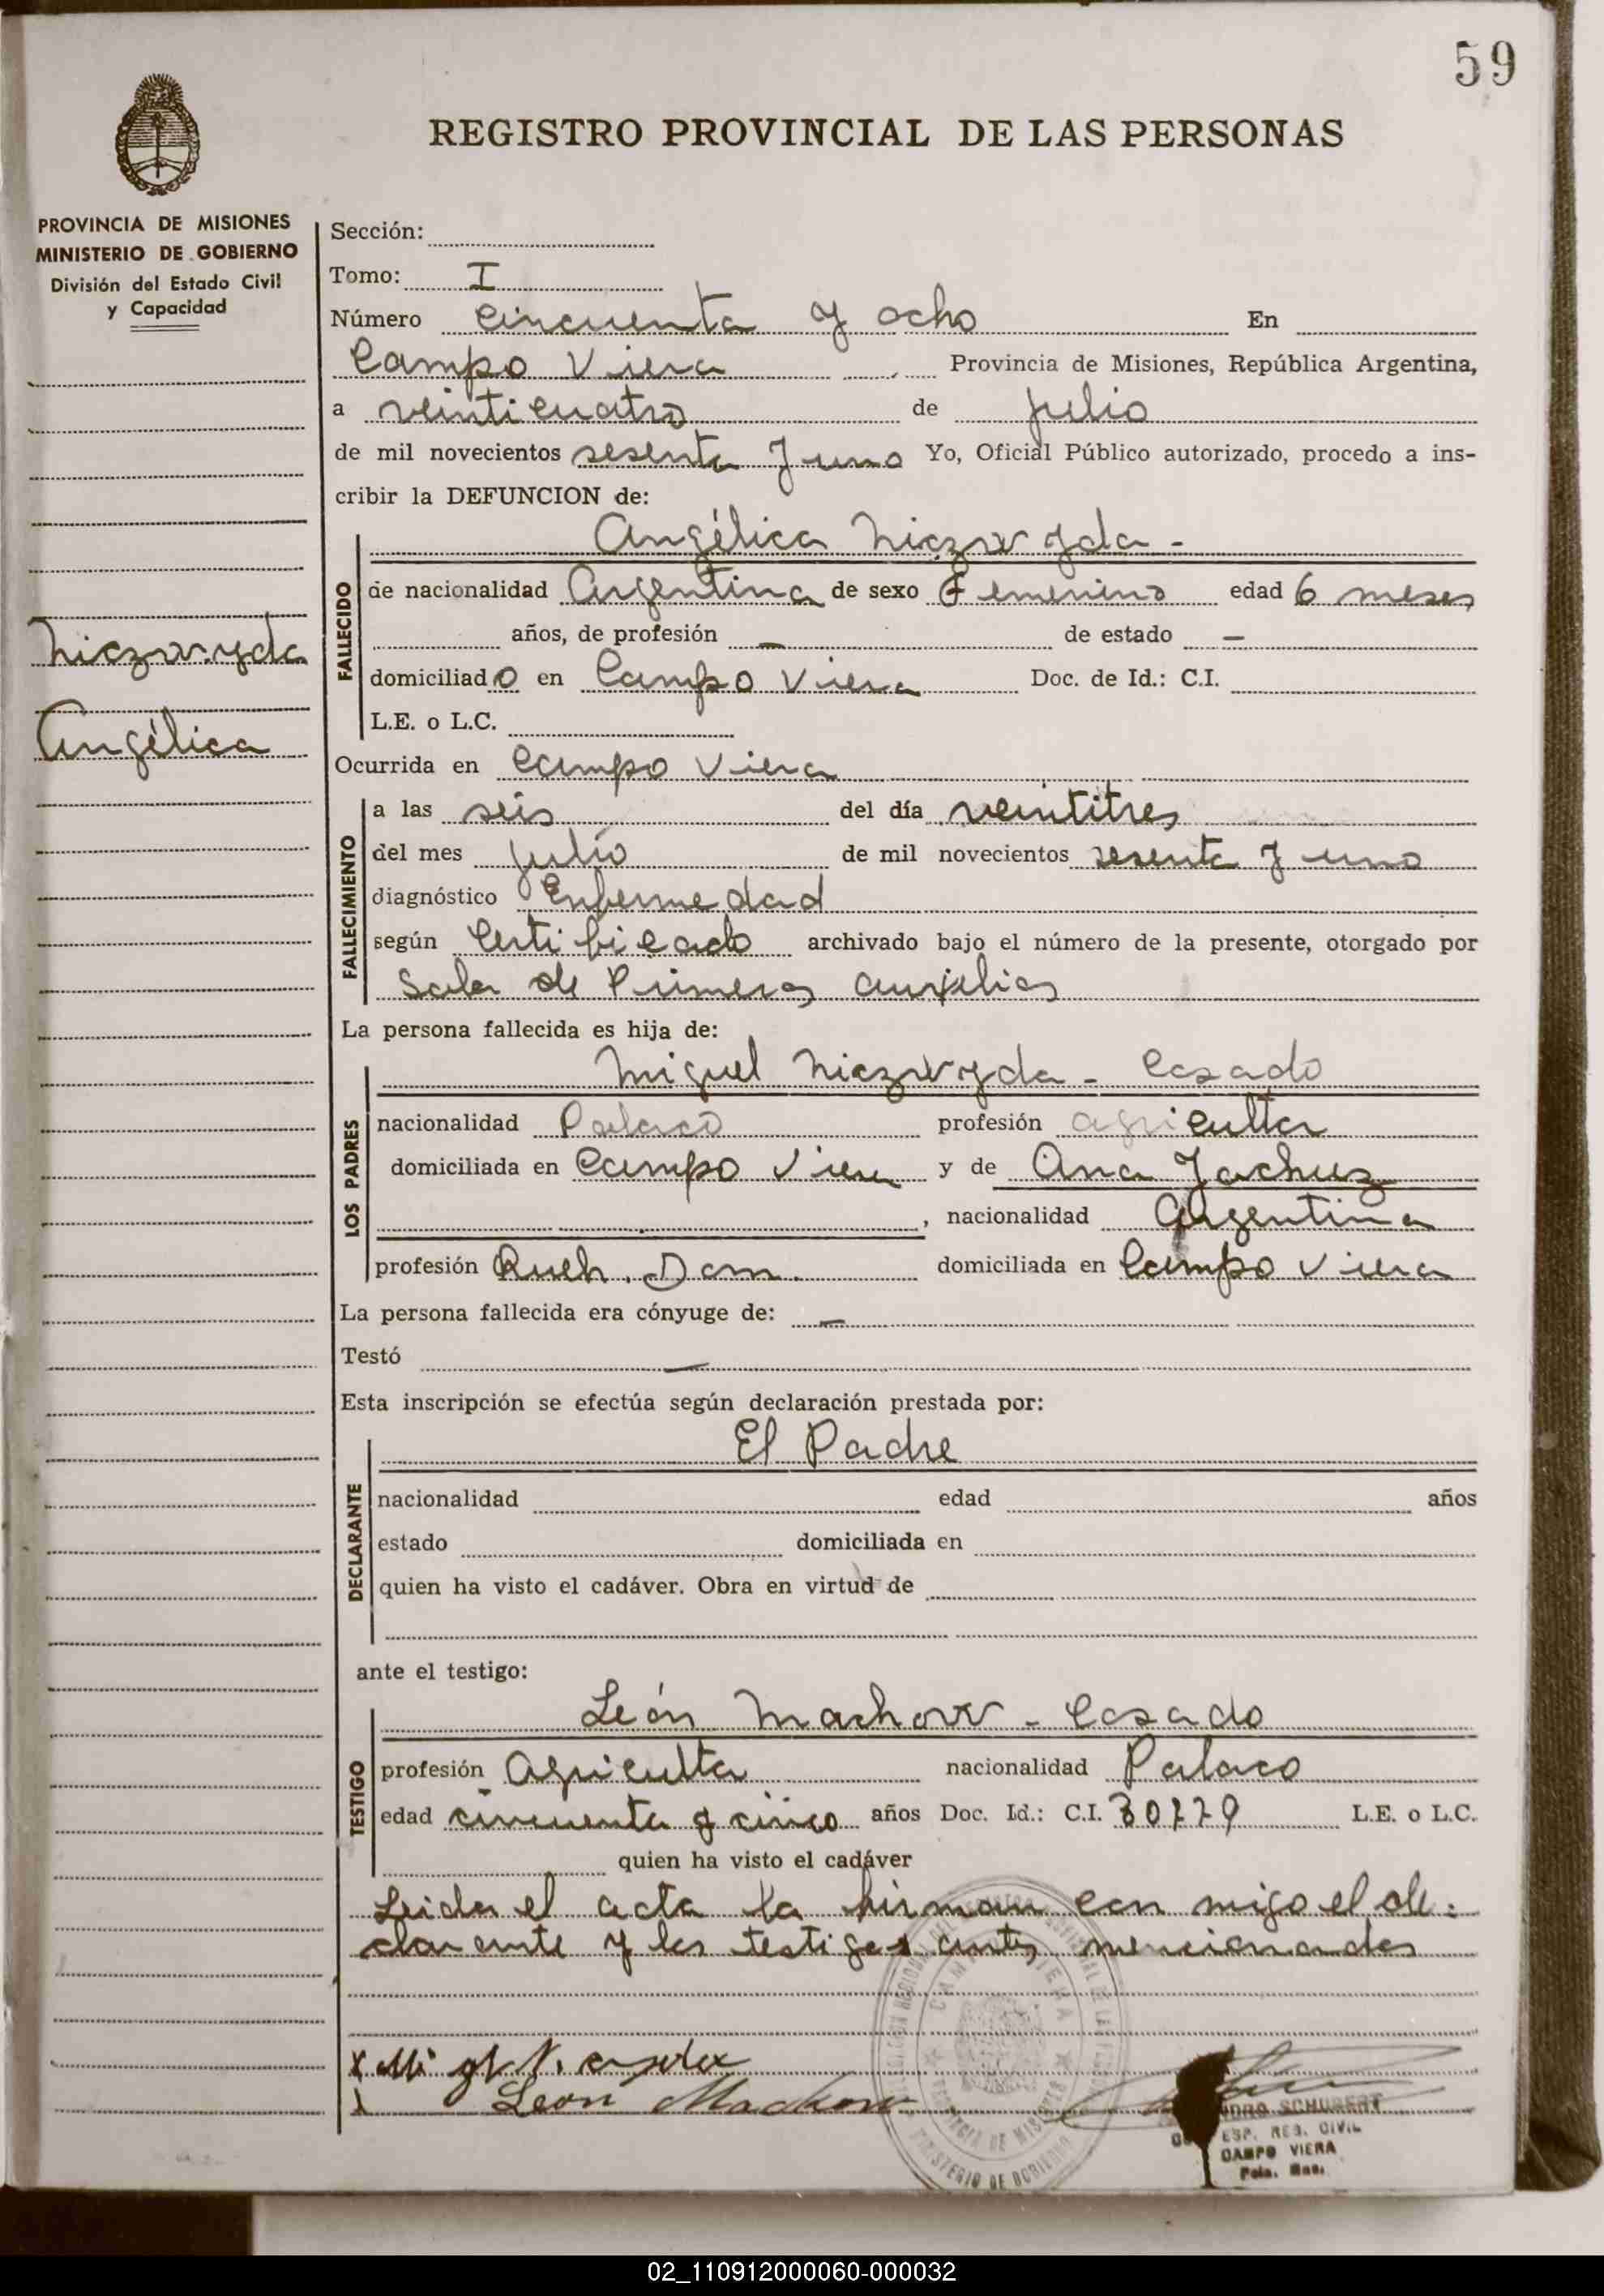 59
REGISTRO PROVINCIAL DE LAS PERSONAS
PROVINCIA DE MISIONES
MINISTERIO DE GOBIERNO
División del Estado Civil
y Capacidad
Angélica
Sección:
Tomo: I
Número cincuenta y ocho En
Campo Viera Provincia de Misiones, República Argentina,
a veinticuatro de julio
de mil novecientos sesenta y uno Yo, Oficial Público autorizado, procedo a ins-
cribir la DEFUNCION de:
Angélica
FALLECIDO
de nacionalidad Argentina de sexo Femenino edad 6 meses
años, de profesión — de estado —
domiciliado en Campo Viera Doc. de Id.: C.I.
L.E. o L.C.
Ocurrida en Campo Viera
FALLECIMIENTO
a las seis del día veintitres
del mes julio de mil novecientos sesenta y uno
diagnóstico Enfermedad
según Certificado archivado bajo el número de la presente, otorgado por
Sala de Primeros auxilios
La persona fallecida es hija de:
LOS PADRES
Miguel - Casado
nacionalidad Polaco profesión agriculta
domiciliada en Campo Viera y de Ana
, nacionalidad Argentina
profesión Queh. Dom. domiciliada en Campo Viera
La persona fallecida era cónyuge de: —
Testó —
Esta inscripción se efectúa según declaración prestada por:
El Padre
DECLARANTE
nacionalidad edad años
estado domiciliada en
quien ha visto el cadáver. Obra en virtud de
ante el testigo:
León - Casado
TESTIGO
profesión Agriculta nacionalidad Polaco
edad cincuenta y cinco años Doc. Id.: C.I. L.E. o L.C.
quien ha visto el cadáver
Leida el acta la firman con migo el de-
clarante y los testigos antes mencionados
Leon
SCHUBERT
ESP. REG. CIVIL
CAMPO VIERA
Pcia. Mnes.
02_110912000060-000032